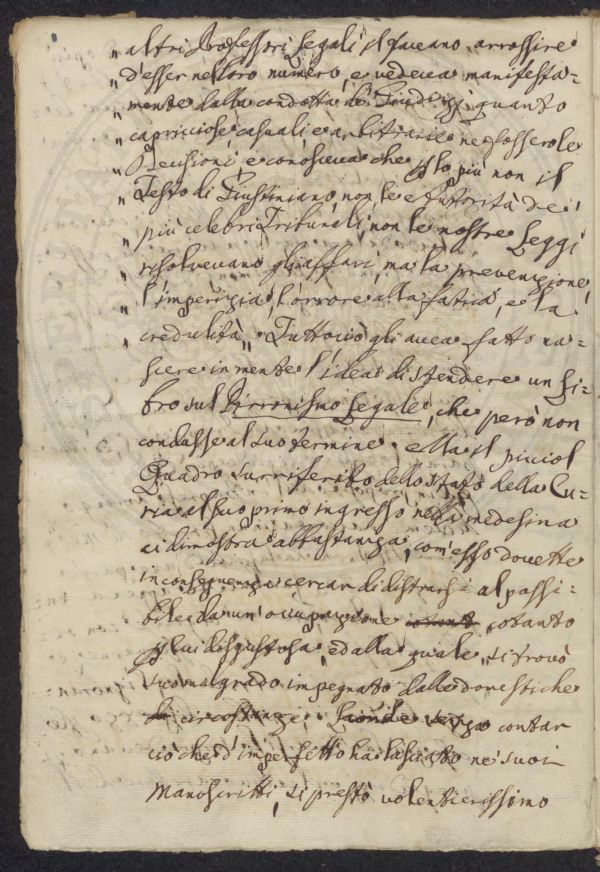 " altri Professori Legali il faceano arrossire
" d'esser nel loro numero, e vedeva manifesta=
" mente dalla condotta de' Giudizj quanto
" capriciose casuali e arbitrarie ne fosser le
" Decisioni, e conosceva che p lo più non il
" Testo di Giustiniano, non le Autorità de'
" più celebri Tribunali, non le nostre Leggi
" risolvevano gli affari, ma la prevenzione,
" l'imperizia, l'orrore alla fatica, e la
" credulità". Tuttociò gli avea fatto na=
scere in mente l'idea di stendere un Li=
bro sul Pirronismo Legale, che però non
condusse al suo termine. Ma il picciol
Quadro surriferito dello stato della Cu=
ria al suo primo ingresso nella medesima
ci dimostra abbastanza, com'esso dovette
in conseguenza cercar di distrarsi al possi=
bile da un' occupazione cotanto
p lui disgustosa, e dalla quale si trovò
suo malgrado impegnato dalle domestiche
circostanze. Laonde senza contar
ciò che d'imperfetto ha lasciato ne' suoi
Manoscritti, si prestò volentierissimo